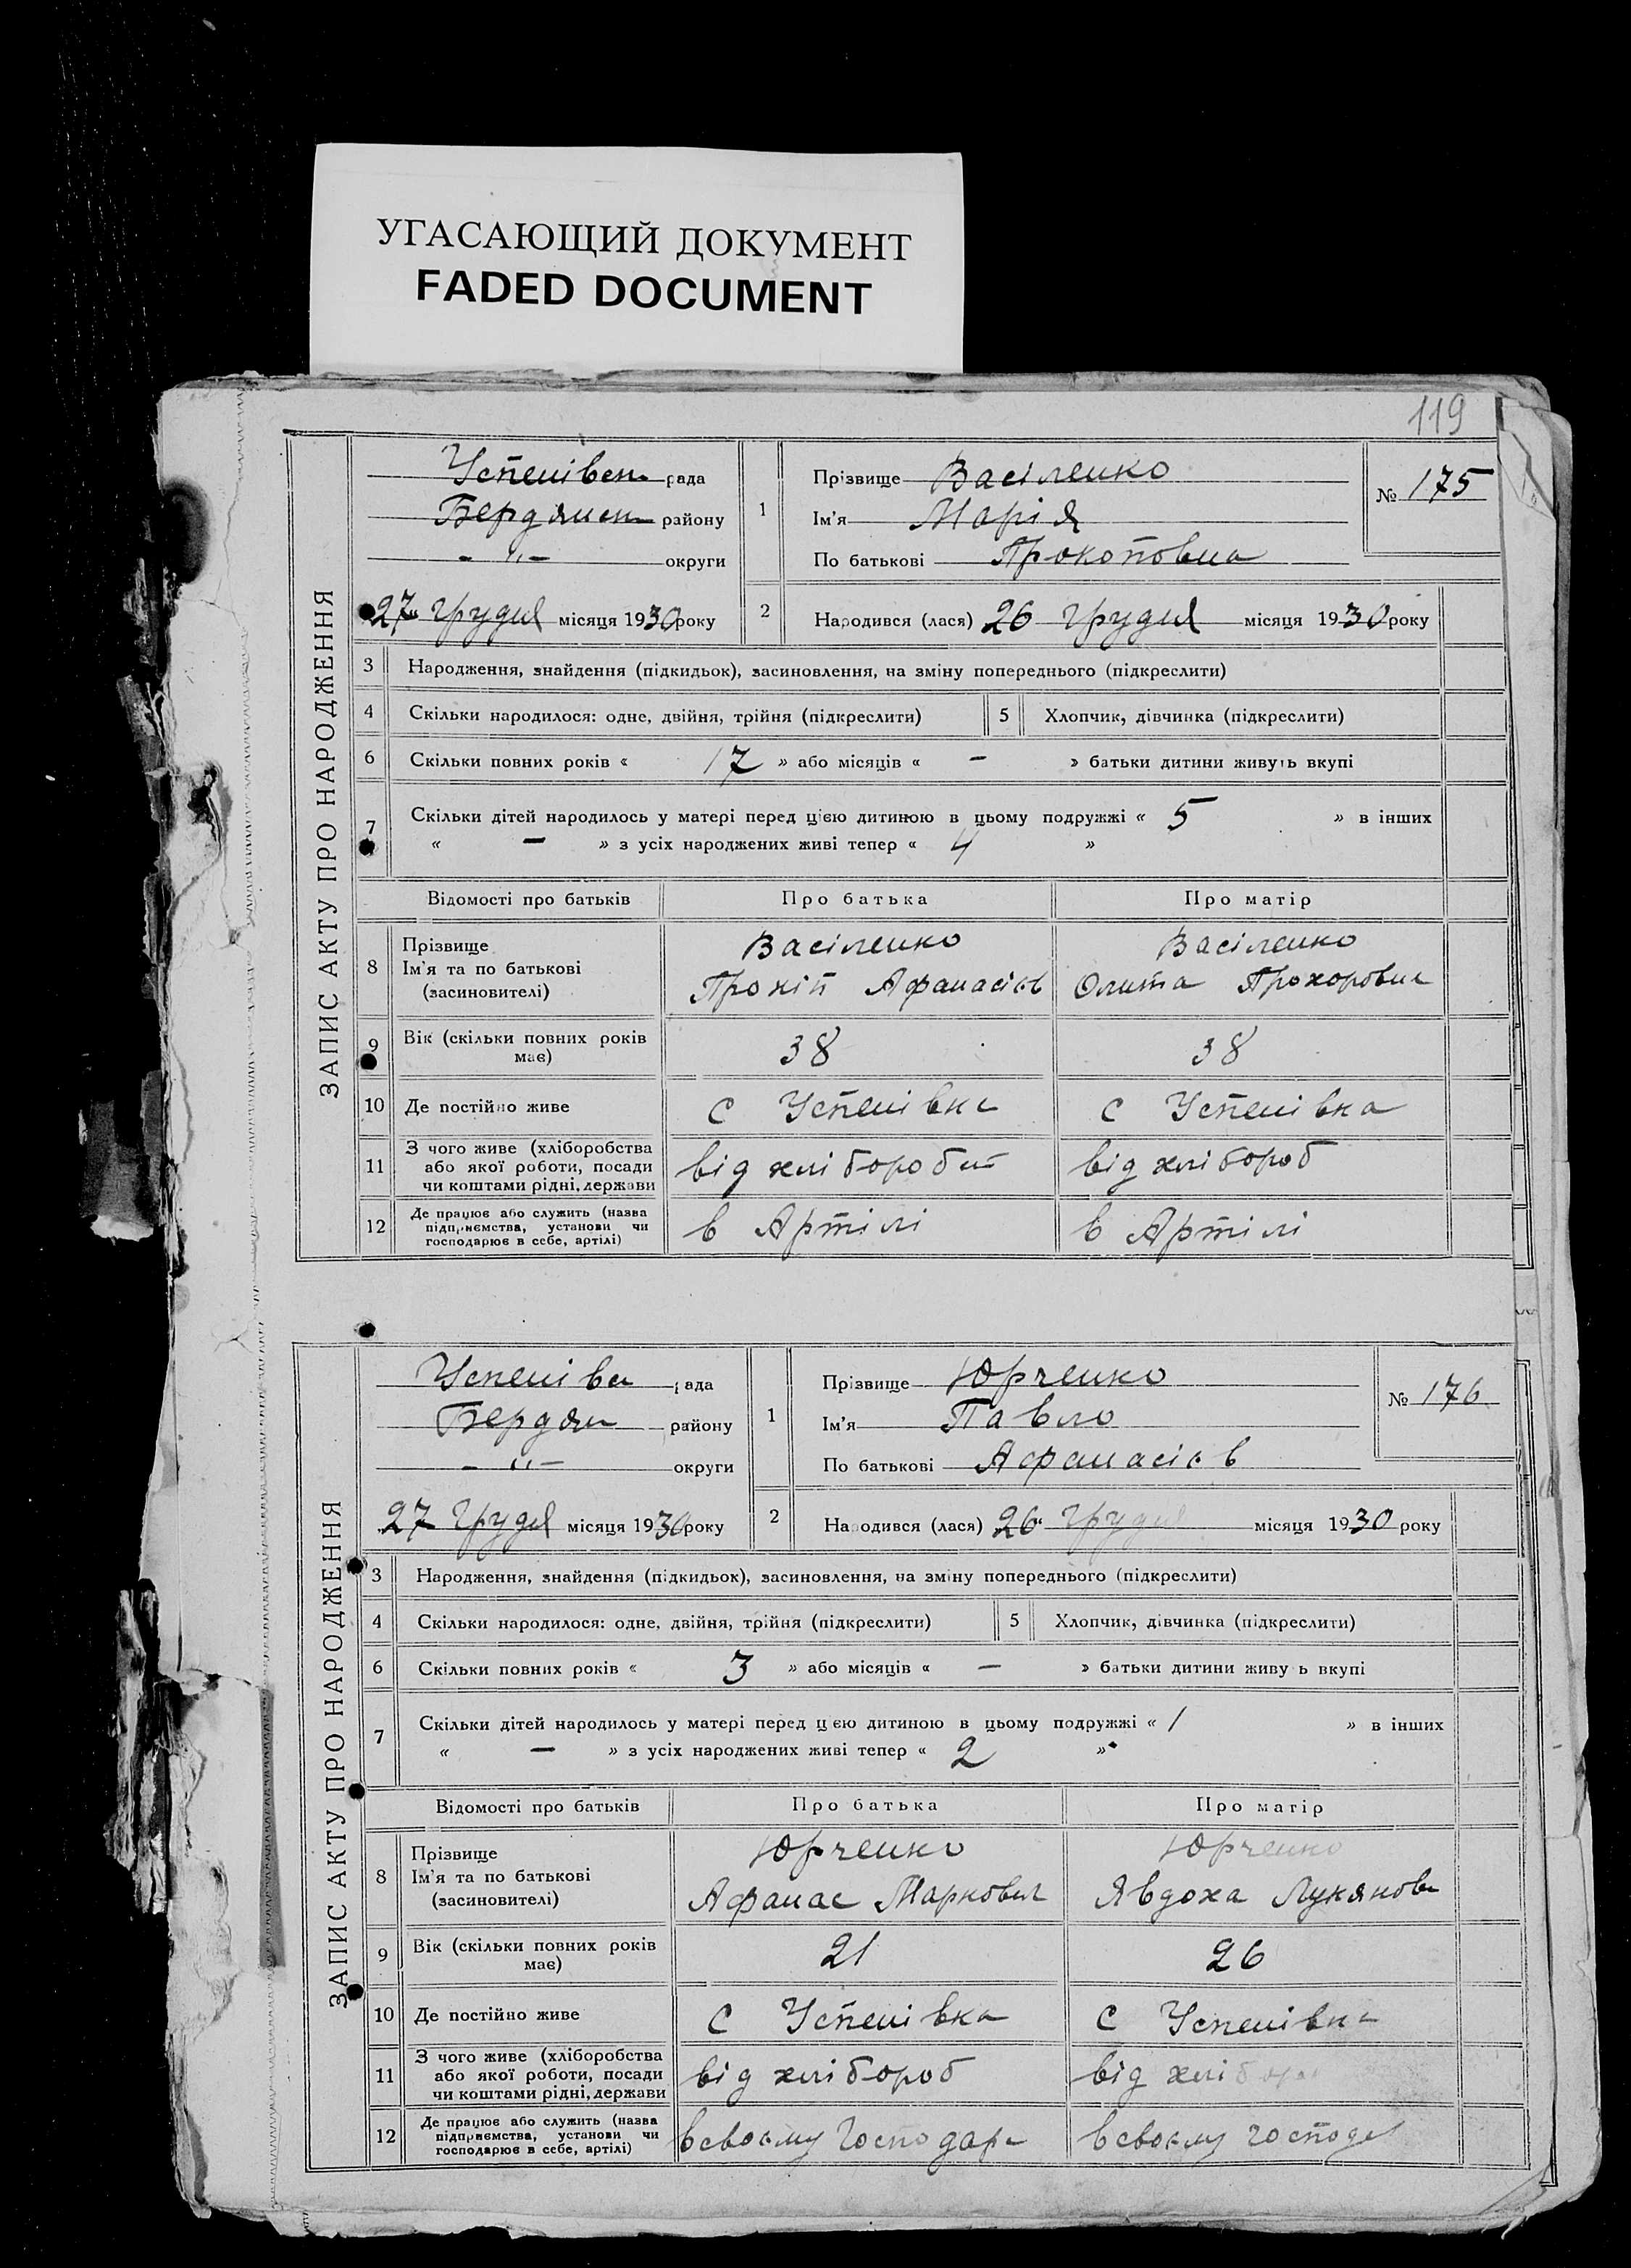 УГАСАЮЩИЙ ДОКУМЕНТ
FADED DOCUMENT
119
ЗАПИС АКТУ ПРО НАРОДЖЕННЯ
Успенівсь рада
Бердянсь району
- " - округи
27 грудня місяця 1930 року
1
Прізвище Васіленко
Ім'я Марія
По батькові Прокоповна
№ 175
2
Народився (лася) 26 грудня місяця 1930 року
3 Народження, знайдення (підкидьок), засиновлення, на зміну попереднього (підкреслити)
4 Скільки народилося: одне, двійня, трійня (підкреслити) 5 Хлопчик, дівчинка (підкреслити)
6 Скільки повних років « 17 » або місяців « - » батьки дитини живуть вкупі
7 Скільки дітей народилось у матері перед цією дитиною в цьому подружжі « 5 » в інших
« - » з усіх народжених живі тепер « 4 »
Відомості про батьків Про батька Про матір
8 Прізвище Ім'я та по батькові (засновителі)
Васіленко Васіленко
Прокіп Афанасієв Прохоровн
9 Вік (скільки повних років має) 38 38
10 Де постійно живе с Успенівка с Успенівка
11 З чого живе (хліборобства або якої роботи, посади чи коштами рідні, держави від хлібороб від хлібороб
12 Де працює або служить (назва підприємства, установи чи господарює в себе, артілі) в Артілі в Артілі
ЗАПИС АКТУ ПРО НАРОДЖЕННЯ
Успенівсь рада
Бердян району
- " - округи
27 грудня місяця 1930 року
1
Прізвище Юрченко
Ім'я Павло
По батькові Афанасієв
№ 176
2
Народився (лася) 26 грудня місяця 1930 року
3 Народження, знайдення (підкидьок), засиновлення, на зміну попереднього (підкреслити)
4 Скільки народилося: одне, двійня, трійня (підкреслити) 5 Хлопчик, дівчинка (підкреслити)
6 Скільки повних років « 3 » або місяців « - » батьки дитини живуть вкупі
7 Скільки дітей народилось у матері перед цією дитиною в цьому подружжі « 1 » в інших
« - » з усіх народжених живі тепер « 2 »
Відомості про батьків Про батька Про матір
8 Прізвище Ім'я та по батькові (засиновителі)
Юрченко Юрченко
Афанас Маркович Явдоха Лукяновн
9 Вік (скільки повних років має) 21 26
10 Де постійно живе с Успенівка с Успенівка
11 З чого живе (хліборобства або якої роботи, посади чи коштами рідні, держави від хлібороб від хлібороб
12 Де працює або служить (назва підприємства, установи чи господарює в себе, артілі) в своєму господар в своєму господ